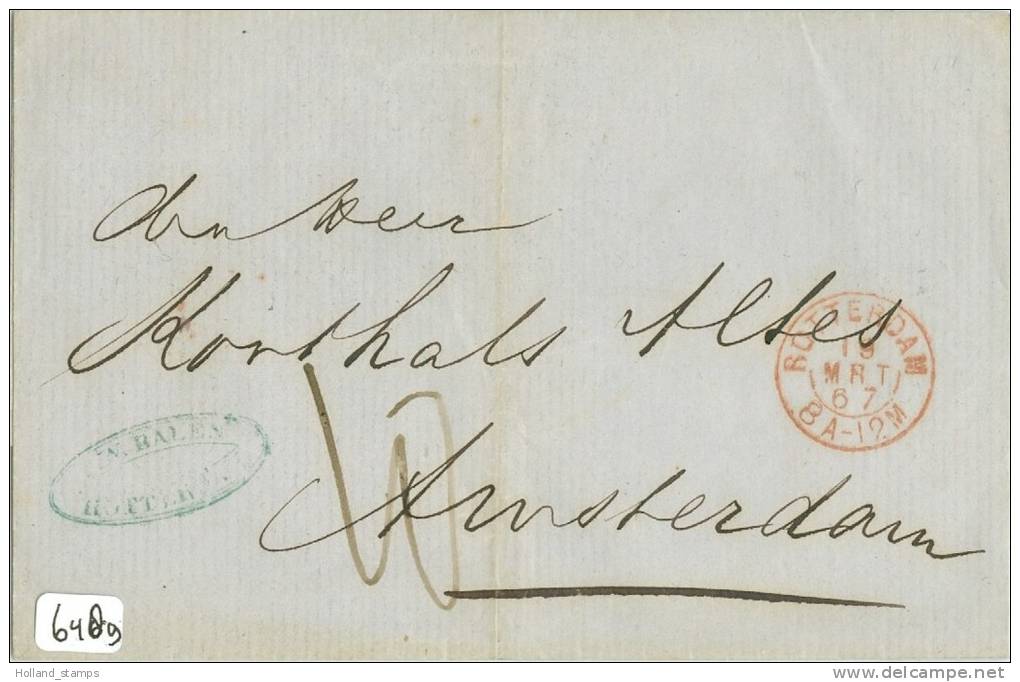 den Heer
Korthals Altes
Amsterdam
10
ROTTERDAM
19
MRT
67
8 A-12M
V. BALEN
ROTTERD
Holland_stamps
delcampe.net